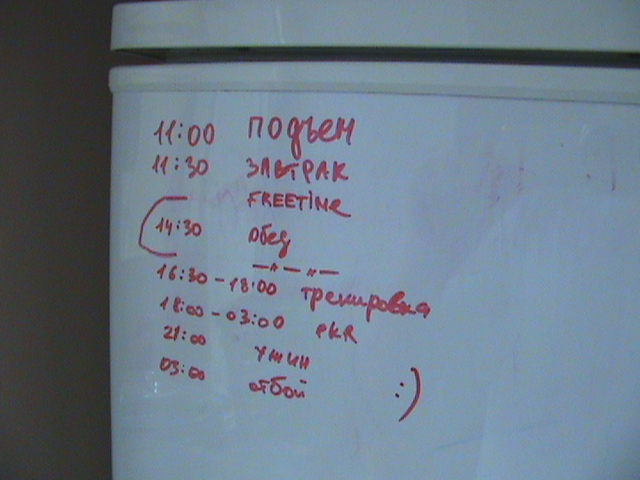 11:00 подъем
11:30 ЗАВТРАК
FREETIME
14:30 обед
— " — " —
16:30 - 18:00 тренировка
18:00 - 03:00 PKR
21:00 ужин
03:00 отбой :)